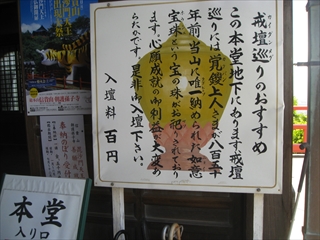 戒壇巡りのおすすめ
この本堂地下にあります、戒壇
巡りには覚鑁上人さまが八百五十
年前、当山に唯一納められた如意
宝珠という宝の珠がお祀りされており
ます。心願成就の御利益が大変あ
らたかです。是非御入壇下さい。
入壇料 百円
本堂
入り口